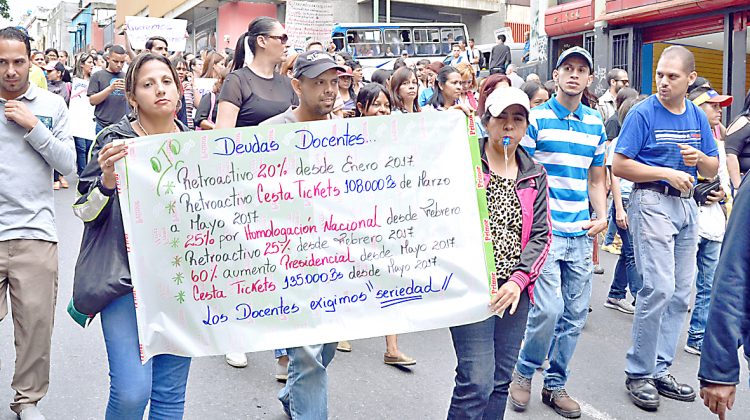 Deudas Docentes...
OJO
Retroactivo 20% desde Enero 2017
Retroactivo Cesta Tickets 108000 Bs de Marzo
a Mayo 2017
25% por Homologación Nacional desde Febrero
Retroactivo 25% desde Febrero 2017
60% aumento Presidencial desde Mayo 2017
Cesta Tickets 135.000 Bs desde Mayo 2017
Los Docentes exigimos "seriedad"